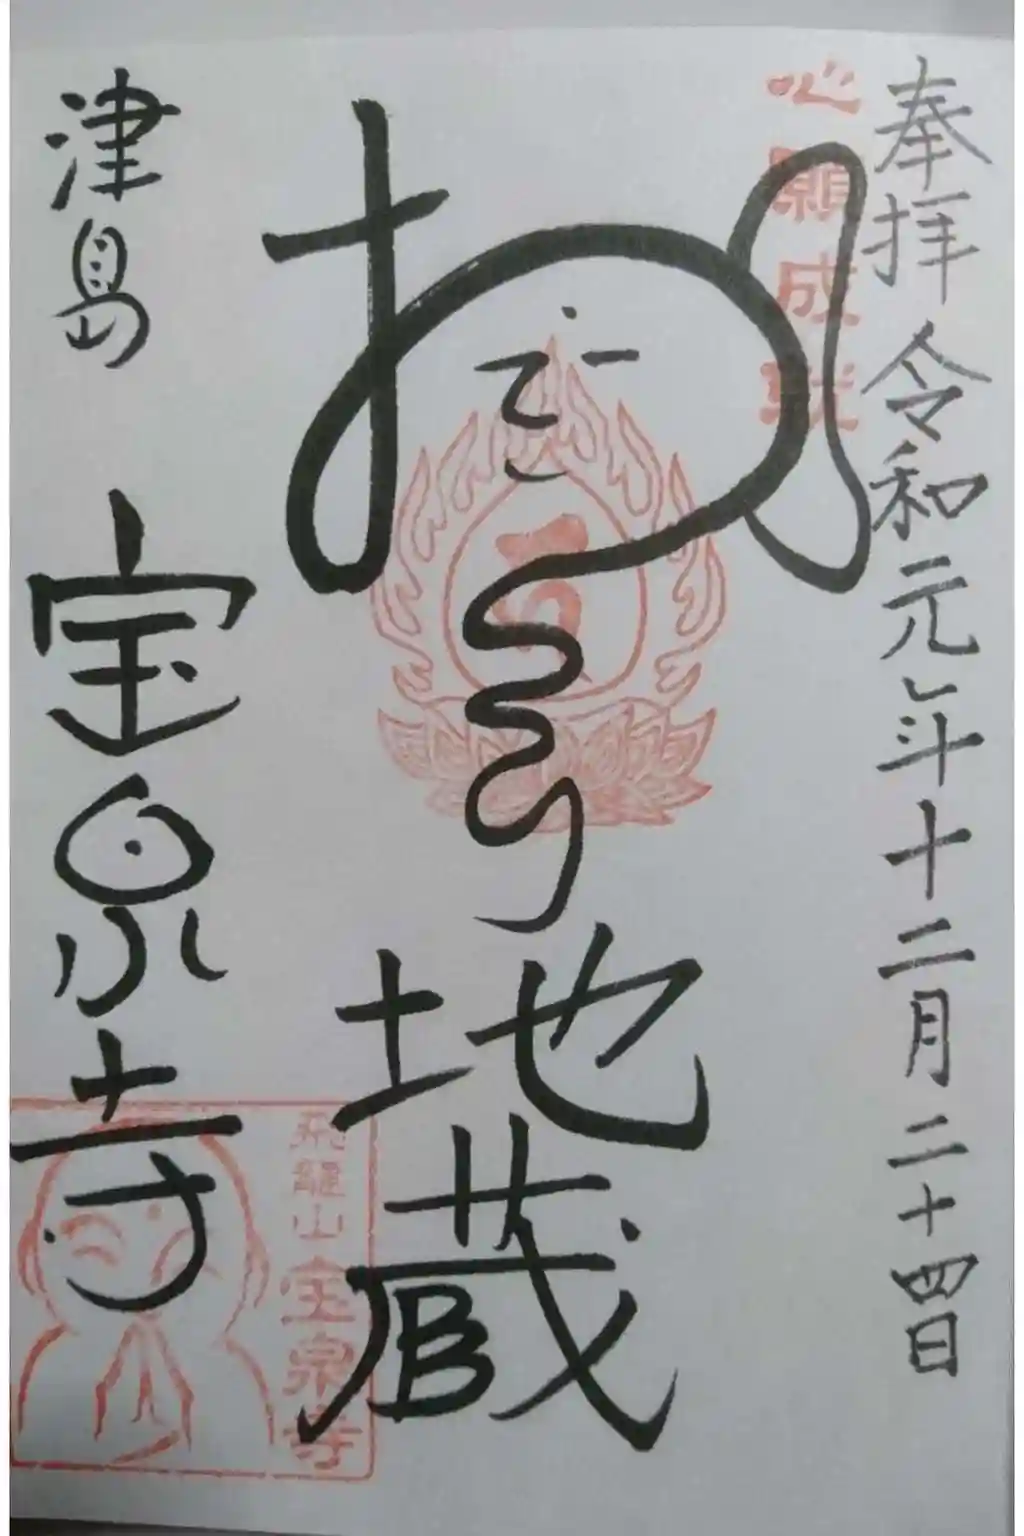 奉拝 令和元年十二月二十四日
心願成就
お地蔵
津島 宝泉寺
飛龍山宝泉寺